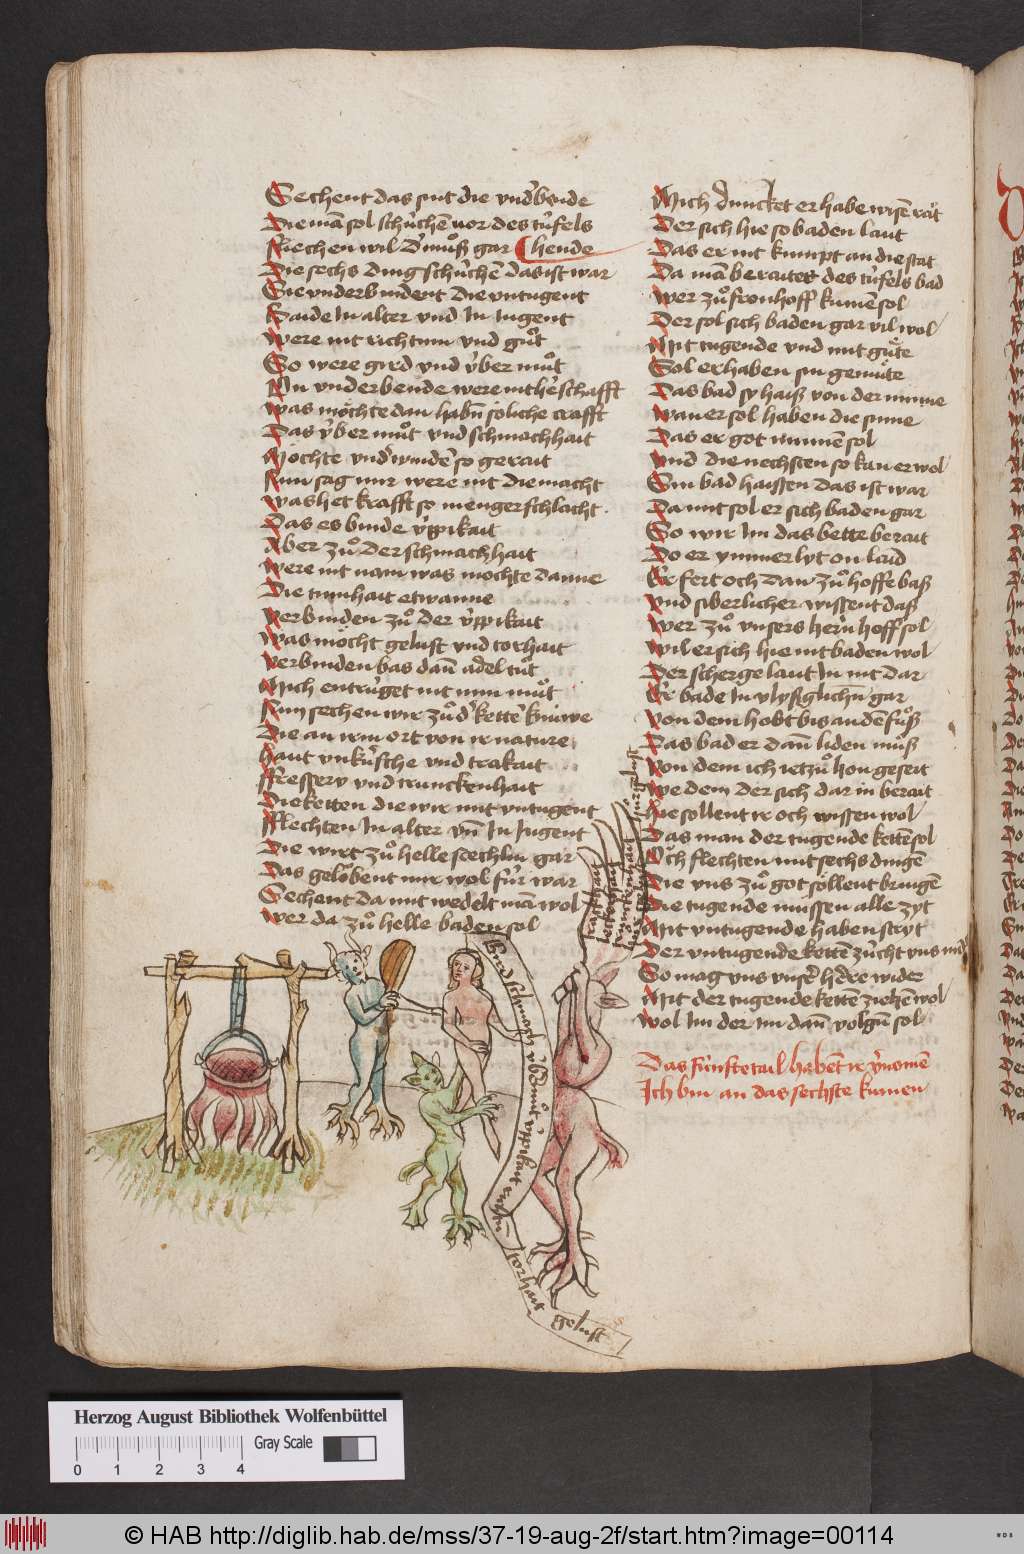 Sechent das sint die vnd'bende
Die mā sol schúchē vor des túfels
fliechen wil d' můß gar hende
Die sechs ding schúchē das ist war
Sie vnderbindent die vntugent
Baide In alter vnd In Iugent
Were nit richtum vnd gůt
So were gird vnd v́ber můt
An vnderbende were nit h'schafft
was möchte dan habn̄ soliche crafft
Das v́ber můt vnd schmachhait
Mochte vnd' winden̄ so gerait
Nun sag mir were nit die macht
was het krafft so menger schlacht
Das es binde v́ppikait
Aber zů der schmachhait
were nit nam was mochte danne
Die tumhait etwanne
verbinden zů der v́ppikait
was möcht gelust vnd torhait
verbinden bas dan̄ adel tůt
Mich entrúget nit min můt
Nun sechen wir zů d' kette' kniwe
Die an irm ort von ir nature
haut vnkúsche vnd trakait
Fressery vnd trunckenhait
Die ketten die wir mit vntugent
Flechten In alter vn̄ In Iugent
Die wirt zů helle sechlin gar
Das gelöbent mir wol fúr war
Sechent da mit wedelt mā wol
wer da zů helle baden sol
Mich duncket er habe wisē rǎt
Der sich hie so baden laut
Das er nit kumpt an die stat
Da mā beraitet des túfels bad
wer zů fronhoff kumē sol
Der sol sich baden gar vil wol
Mit tugende vnd mit gůte
Sol er haben sin gemůte
Das bad sy haiß von der minne
wan er sol haben die sinne
Das er got minnē sol
vnd die nechsten so kan er wol
Sin bad haissen das ist war
Da mit sol er sich baden gar
So wir Im das bette berait
Do er ymmer lyt on laid
Er fert och dan zů hoffe baß
vnd siberlicher wissent daß
wer zů vnsers hern̄ hoff sol
wil er sich hie nit baden wol
Der scherge laut In nit dar
Er bade In vlyßglichn̄ gar
von dem hobt bis an dē fůß
Das bad er dan̄ liden můß
von dem ich ietzů hon geseit
we dem der sich dar in berait
hie sollent ir och wissen wol
Das man der tugende kettē sol
Öch flechten mit sechs dingē
Die vns zů got söllent bringē
Die tugende müssen alle zyt
Mit vntugende haben stryt
Der vntugende kettē zúcht vns nid'
So mag vns vnser h're wider
Mit der tugende kettē ziehē wol
wol Im der im dan̄ volgn̄ sol
Das fúnfte tail habēt ir v'nomē
Ich bin an das sechste kumen
gird schmach v́b'můt v́ppikait
torhait
gelust
trackhait
trunckenhait
Herzog August Bibliothek Wolfenbüttel
Gray Scale
0 1 2 3 4
© HAB http://diglib.hab.de/mss/37-19-aug-2f/start.htm?image=00114